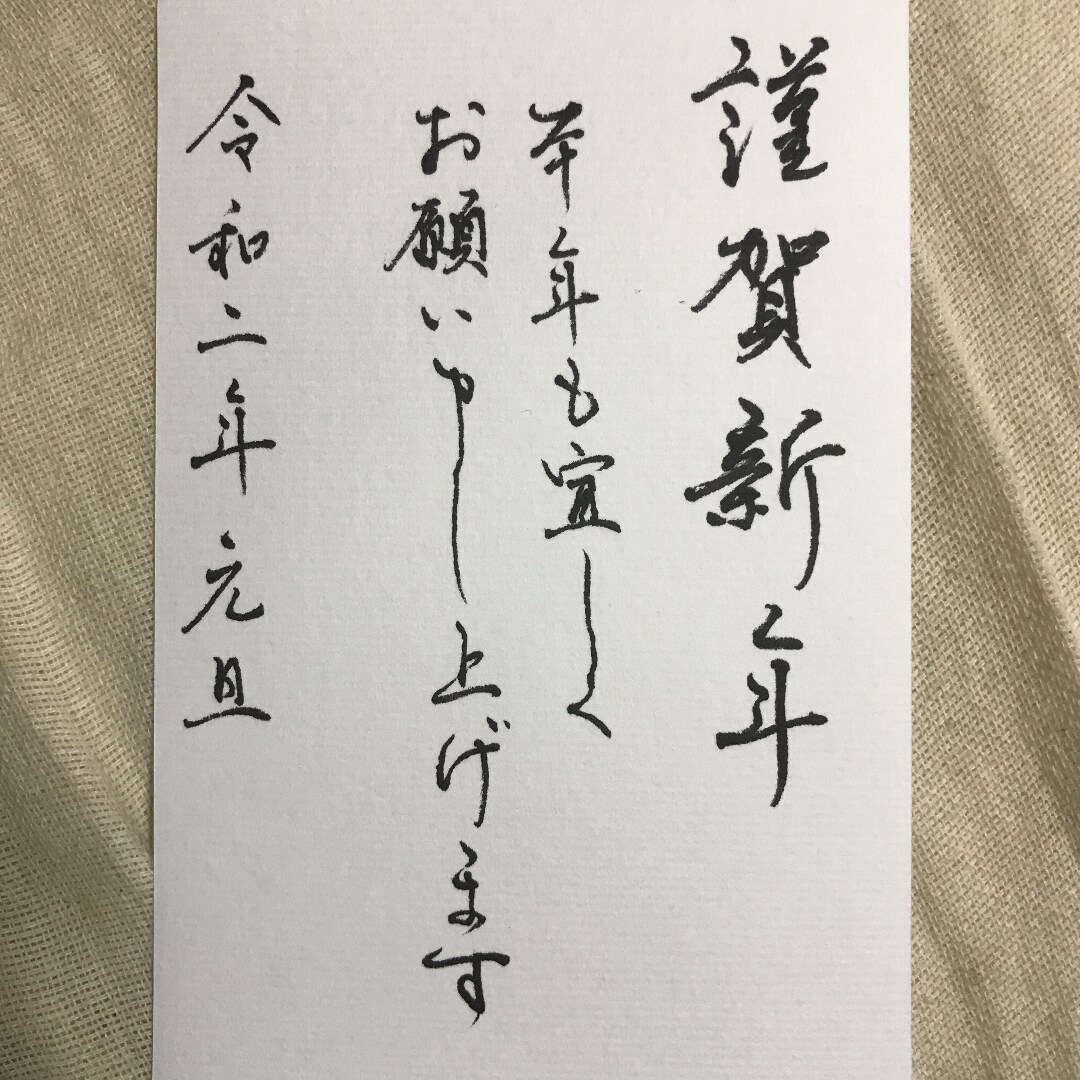 謹賀新年
本年も宜しく
お願い申し上げます
令和二年元旦